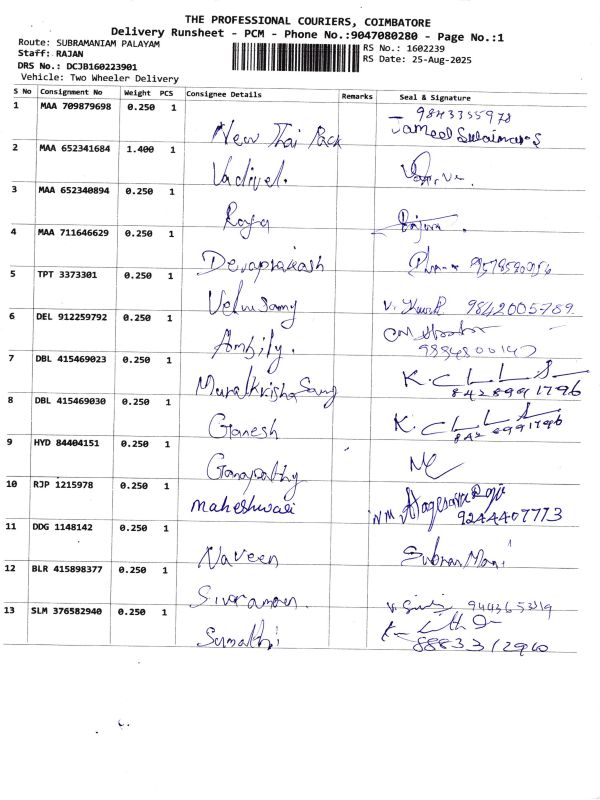 THE PROFESSIONAL COURIERS, COIMBATORE
Delivery Runsheet - PCM - Phone No.:9047080280 - Page No.:1
Route: SUBRAMANIAM PALAYAM
RS No.: 1602239
Staff: RAJAN
RS Date: 25-Aug-2025
DRS No.: DCJB160223901
Vehicle: Two Wheeler Delivery
S No Consignment No Weight PCS Consignee Details Remarks Seal & Signature
1 MAA 709879698 0.250 1
9843355978
New Thai Pack Jameel Sulaiman S
2 MAA 652341684 1.400 1
Vadivel.
3 MAA 652340894 0.250 1
Roya
4 MAA 711646629 0.250 1
Devaprakash
5 TPT 3373301 0.250 1
Velusamy 9842005789
6 DEL 912259792 0.250 1
Ambily. 9884800147
7 DBL 415469023 0.250 1
Muralkrishasamy 8428991796
8 DBL 415469030 0.250 1
Ganesh
9 HYD 84404151 0.250 1
Ganapathy
10 RJP 1215978 0.250 1
Maheshwari 9244407773
11 DDG 1148142 0.250 1
Naveen Subramani
12 BLR 415898377 0.250 1
Sivaraman.
13 SLM 376582940 0.250 1
Sumathi 8883312960